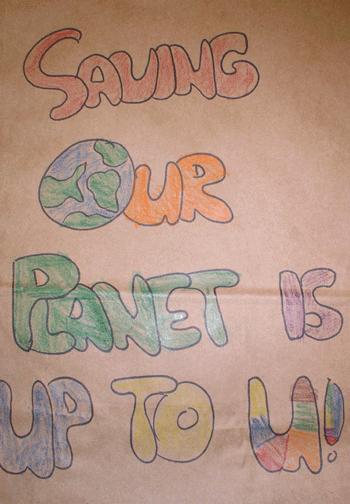 SAVING
OUR
PLANET IS
UP TO US!